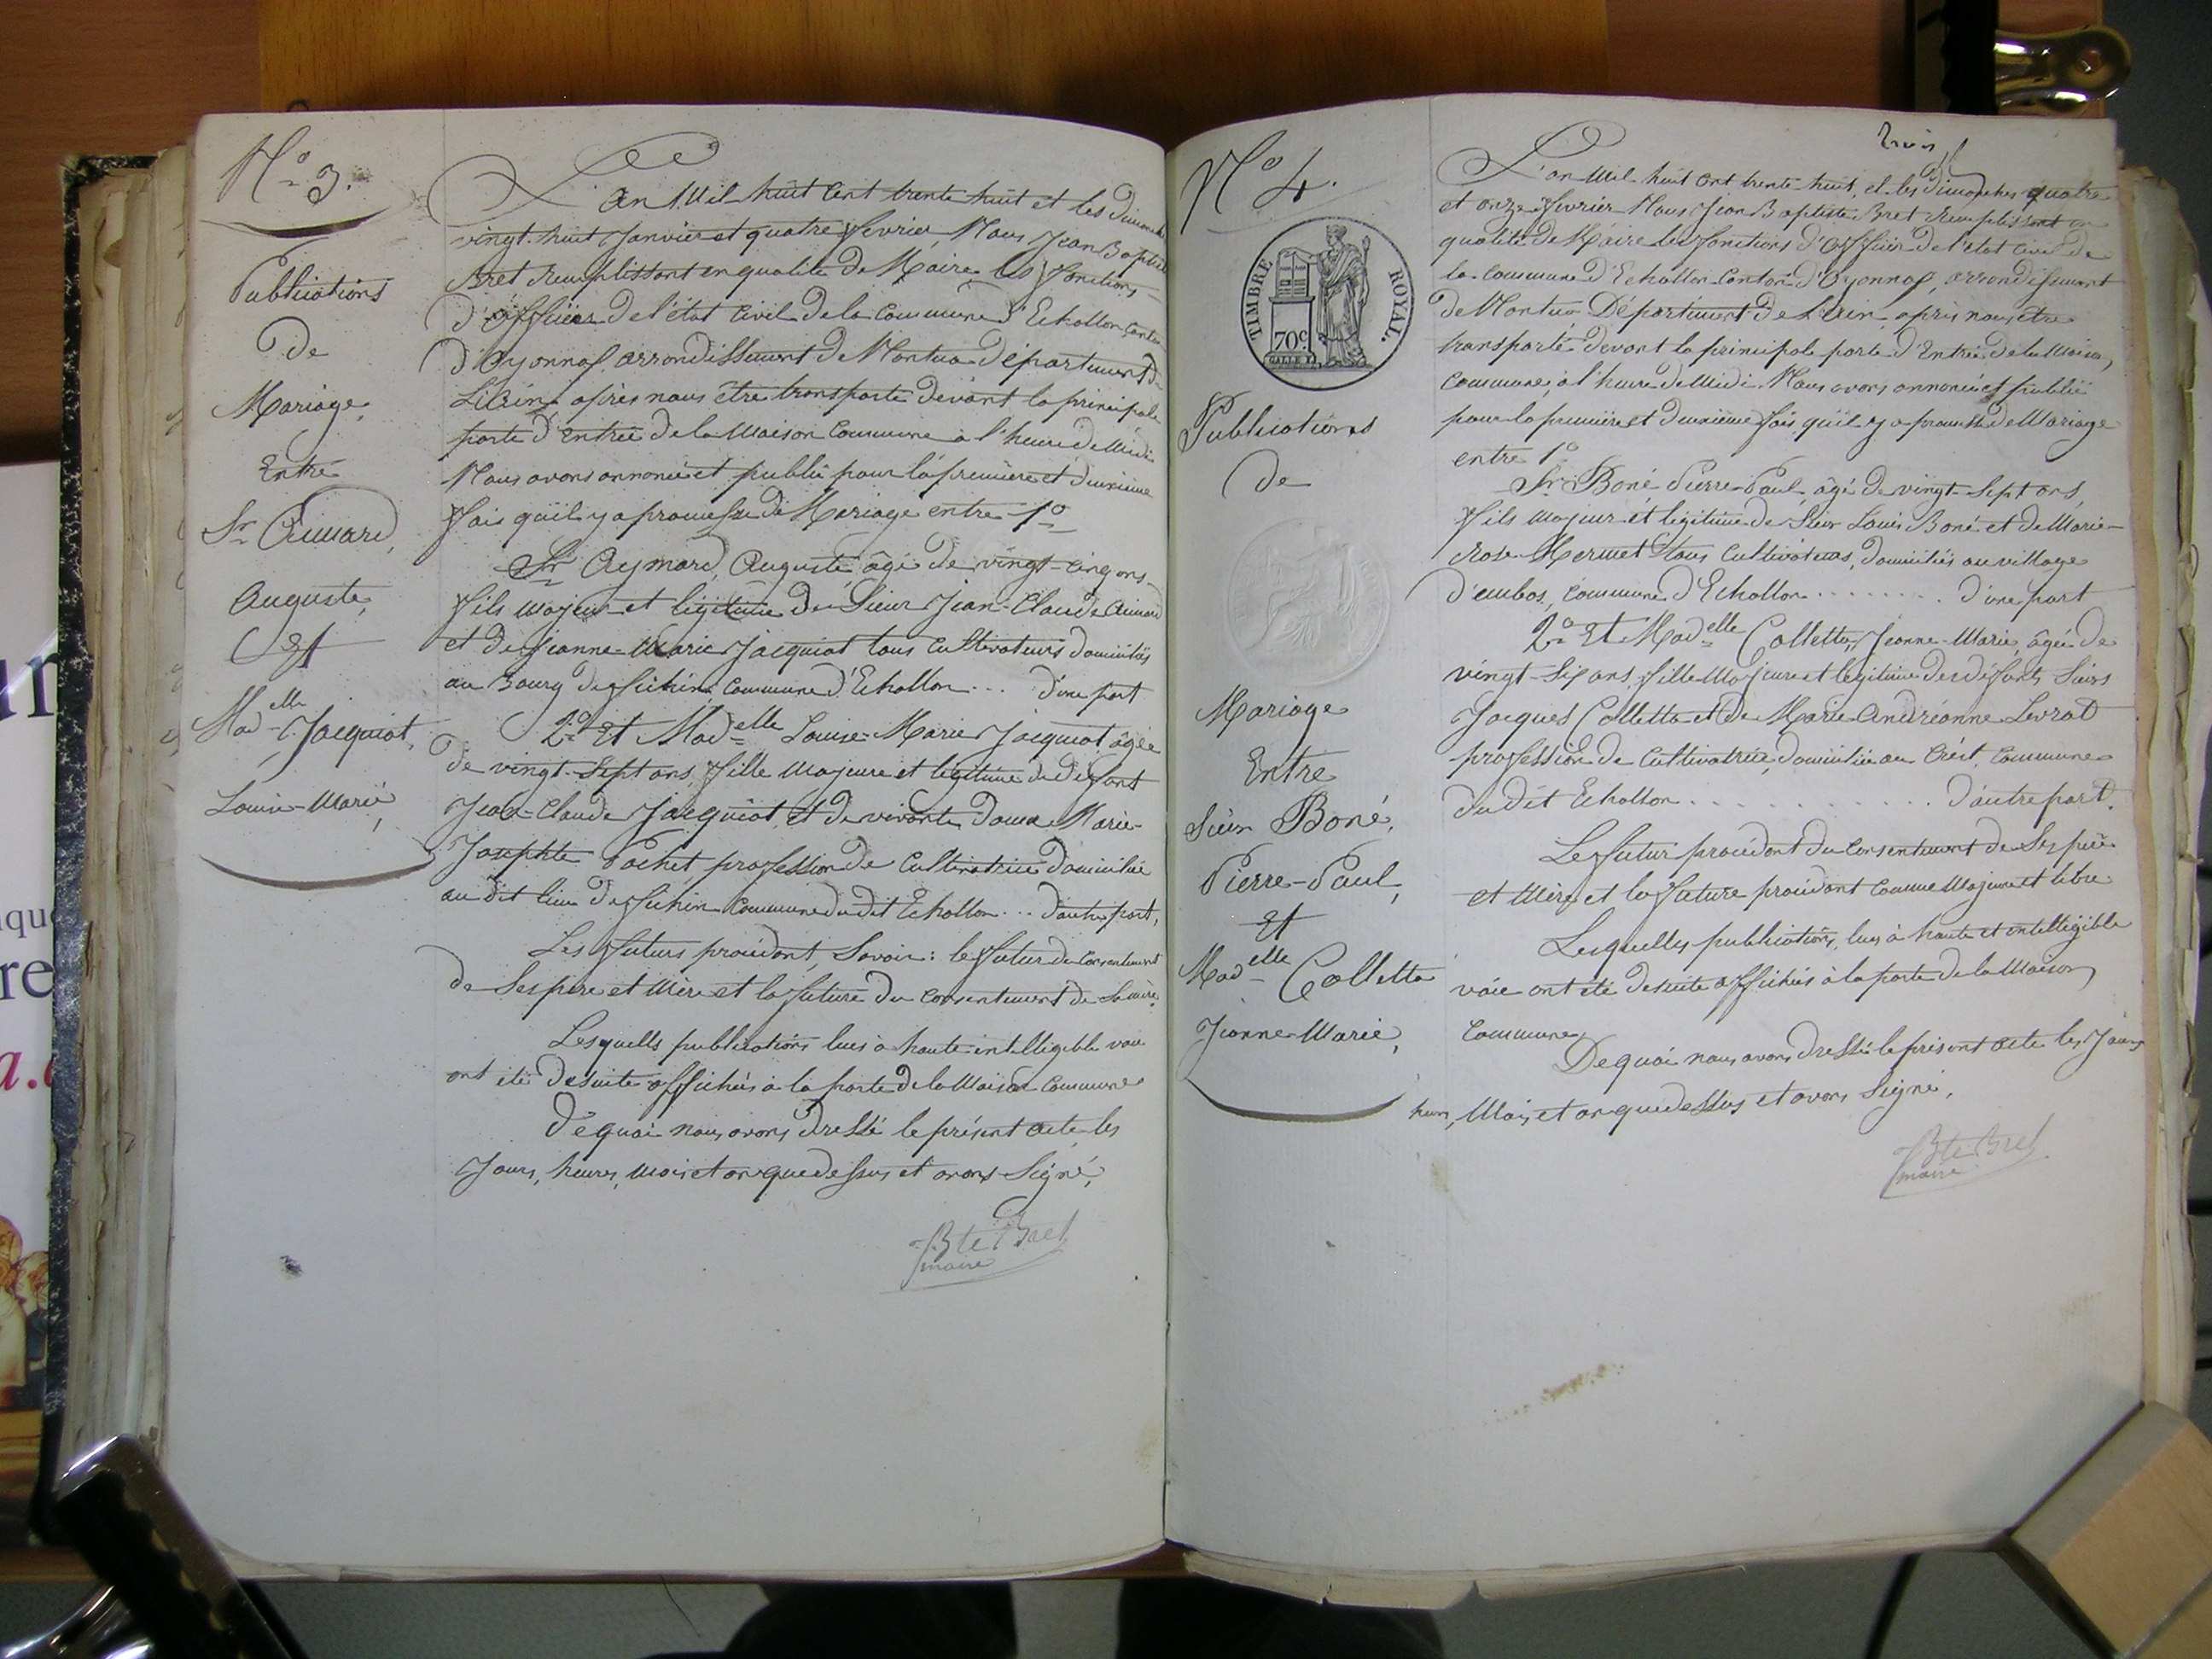 N.o 3.
Publications
de
Mariage,
Entre
Sr Aimard,
Auguste,
Et
Madelle Jacquiot,
Louise-Marie,
L'an Mil huit Cent trente huit et les Dimanches
vingt-huit Janvier et quatre Février, Nous Jean Baptiste
Bret Remplissant en qualité de Maire les fonctions
d'officier de l'état Civil de la Commune d'Echallon Canton
d'Oyonnax, arrondissement de Nantua Département de
L'Ain, après nous être transporté devant la principale
porte d'Entrée de la Maison Commune à l'heure de Midi
Nous avons annoncé et publié pour la première et deuxième
fois qu'il y a promesse de Mariage entre 1o
Sr Aymard, Auguste âgé de vingt-cinq ans
fils majeur et légitime de Sieur Jean-Claude Aimard
et de Jeanne-Marie Jacquiot tous Cultivateurs domiciliés
au Bourg de Commune d'Echallon ... d'une part
2o Et Madelle Louise-Marie Jacquiot âgée
de vingt-sept ans, fille Majeure et légitime de défunt
Jean-Claude Jacquiot, et de vivante dame Marie-
Josephte Pochet profession de Cultivatrice domiciliée
au dit lieu de Commune du dit Echallon ... d'autre part,
Les futurs procédant, Savoir : le futur du Consentement
de Ses père et Mère et la future du Consentement de Sa mère.
Lesquelles publications lues à haute intelligible voie
ont été de suite affichées à la porte de la Maison Commune
De quoi nous avons dressé le présent acte les
Jours, heures, mois et an que dessus et avons Signé,
Bte Bret
maire
trois
N.o 4.
TIMBRE ROYAL.
70c
Publications
de
Mariage
Entre
Sieur Boné,
Pierre-Paul,
Et
Madelle Colletta
Jeanne-Marie,
L'an Mil huit Cent trente huit, et les Dimanches quatre
et onze Février Nous Jean Baptiste Bret Remplissant en
qualité de Maire les fonctions d'Officier de l'état Civil de
la Commune d'Echallon Canton d'Oyonnax, arrondissement
de Nantua Département de L'Ain, après nous être
transporté devant la principale porte d'Entrée de la Maison
Commune, à l'heure de Midi Nous avons annoncé et publié
pour la première et deuxième fois, qu'il y a promesse de Mariage
entre 1o
Sr Boné Pierre-Paul, âgé de vingt-sept ans,
fils majeur et légitime de Sieur Louis Boné et de Marie-
Rose Mermet tous Cultivateurs, domiciliés au village
d'embos, Commune d'Echallon ........ d'une part
2o Et Madelle Colletta, Jeanne-Marie, âgée de
vingt-six ans, fille Majeure et légitime des défunts Sieurs
Jacques Colletta et de Marie Andréanne Levrat
profession de Cultivatrice, domiciliée au Crêt, Commune
du dit Echallon ............ d'autre part.
Le futur procédant du Consentement de Ses père
et Mère et la future procédant Comme Majeure et libre.
Lesquelles publications, lues à haute et intelligible
voie ont été de suite affichées à la porte de la Maison
Commune,
De quoi nous avons dressé le présent acte les Jours
heures, Mois, et an que dessus et avons Signé.
Bte Bret
maire